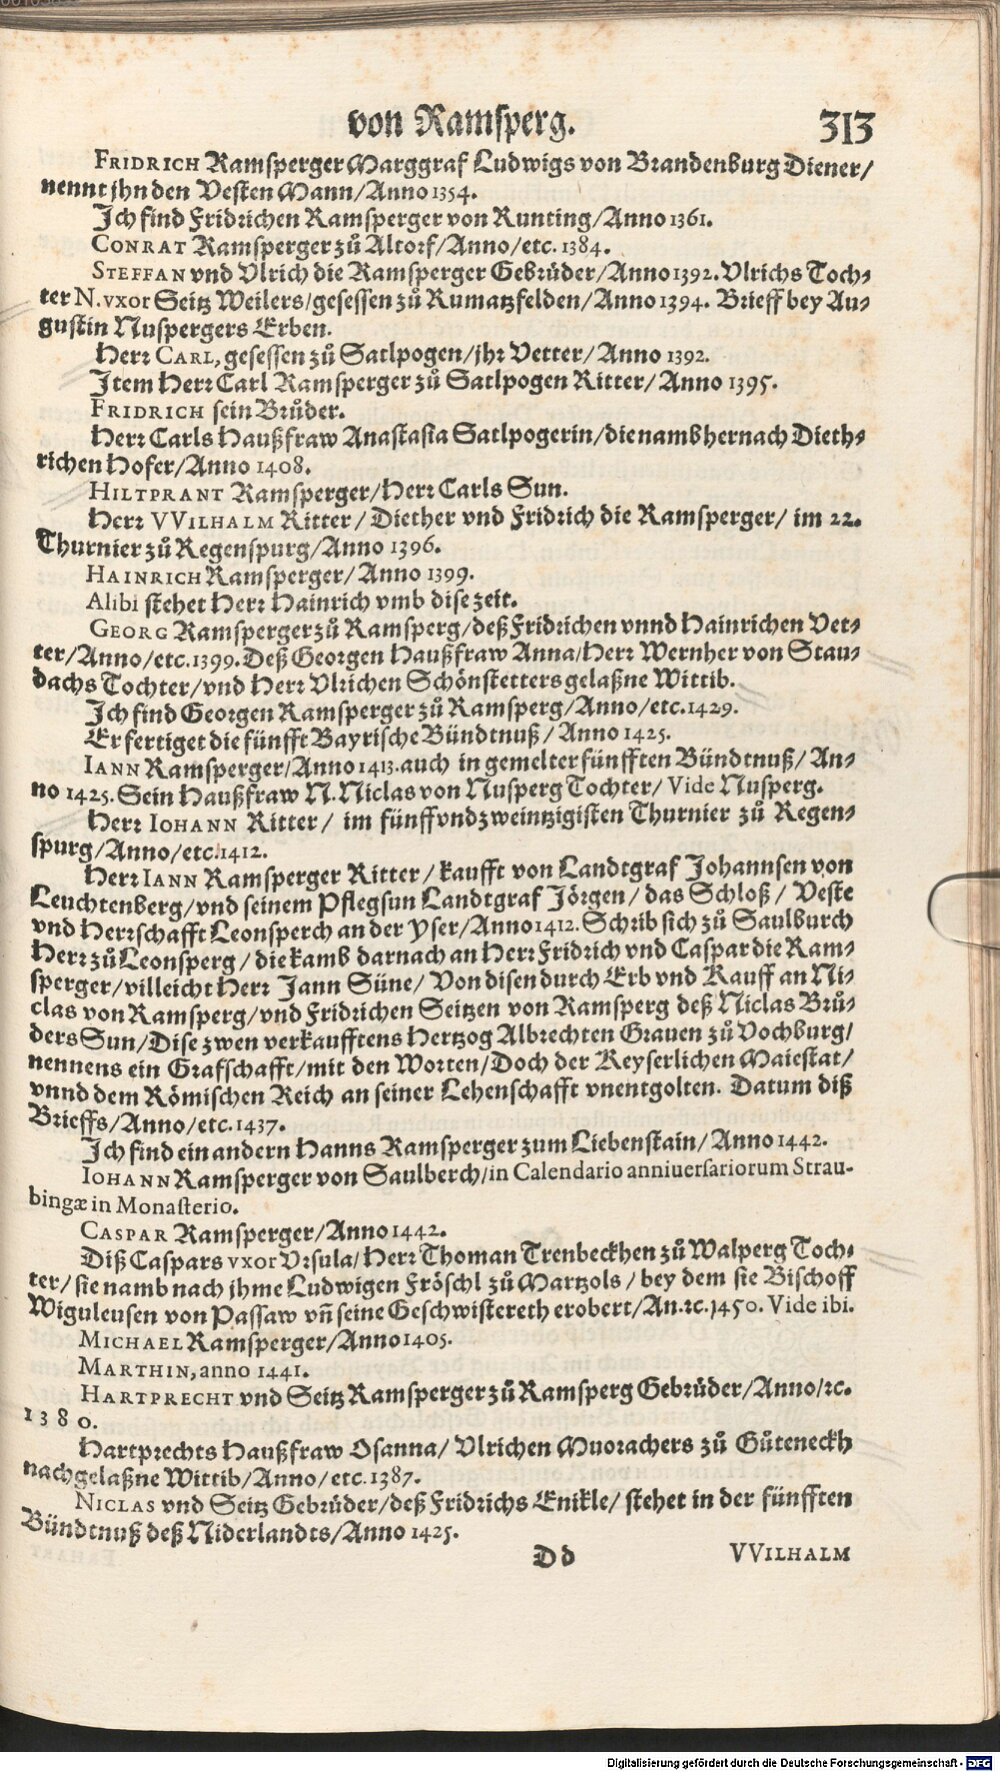 von Ramsperg. 313
FRIDRICH Ramsperger Marggraf Ludwigs von Brandenburg Diener/
nennt jhn den Vesten Mann/Anno 1354.
Jch find Fridrichen Ramsperger von Runting/Anno 1361.
CONRAT Ramsperger zů Altorf/Anno/etc. 1384.
STEFFAN vnd Vlrich die Ramsperger Gebrůder/Anno 1392. Vlrichs Toch-
ter N. vxor Seitz Weilers/gesessen zů Rumatzfelden/Anno 1394. Brieff bey Au-
gustin Nuspergers Erben.
Herr CARL, gesessen zů Satlpogen/jhr Vetter/Anno 1392.
Jtem Herr Carl Ramsperger zů Satlpogen Ritter/Anno 1395.
FRIDRICH sein Brůder.
Herr Carls Haußfraw Anastasia Satlpogerin/die namb hernach Dieth-
richen Hofer/Anno 1408.
HILTPRANT Ramsperger/Herr Carls Sun.
Herr VVILHALM Ritter/ Diether vnd Fridrich die Ramsperger/ im 22.
Thurnier zů Regenspurg/Anno 1396.
HAINRICH Ramsperger/Anno 1399.
Alibi stehet Herr Hainrich vmb dise zeit.
GEORG Ramsperger zů Ramsperg/deß Fridrichen vnnd Hainrichen Vet-
ter/Anno/etc. 1399. Deß Georgen Haußfraw Anna/Herr Wernher von Stau-
dachs Tochter/vnd Herr Vlrichen Schönstetters gelaßne Wittib.
Jch find Georgen Ramsperger zů Ramsperg/Anno/etc. 1429.
Er fertiget die fünfft Bayrische Bündtnuß/Anno 1425.
IANN Ramsperger/Anno 1413. auch in gemelter fünfften Bündtnuß/An-
no 1425. Sein Haußfraw N. Niclas von Nusperg Tochter/ Vide Nusperg.
Herr IOHANN Ritter/ im fünffvndzweintzigisten Thurnier zů Regen-
spurg/Anno/etc. 1412.
Herr IANN Ramsperger Ritter/kaufft von Landtgraf Johannsen von
Leuchtenberg/vnd seinem Pflegsun Landtgraf Jörgen/das Schloß/ Veste
vnd Herrschafft Leonsperch an der Yser/Anno 1412. Schrib sich zů Saulburch
Herr zů Leonsperg/die kamb darnach an Herr Fridrich vnd Caspar die Ram-
sperger/villeicht Herr Jann Süne/Von disen durch Erb vnd Kauff an Ni-
clas von Ramsperg/vnd Fridrichen Seitzen von Ramsperg deß Niclas Brů-
ders Sun/Dise zwen verkaufftens Hertzog Albrechten Grauen zů Vochburg/
nennens ein Grafschafft/mit den Worten/Doch der Keyserlichen Maiestat/
vnnd dem Römischen Reich an seiner Lehenschafft vnentgolten. Datum diß
Brieffs/Anno/etc. 1437.
Jch find ein andern Hanns Ramsperger zum Liebenstain/Anno 1442.
IOHANN Ramsperger von Saulberch/in Calendario anniuersariorum Strau-
bingæ in Monasterio.
CASPAR Ramsperger/Anno 1442.
Diß Caspars vxor Vrsula/Herr Thoman Trenbeckhen zů Walperg Toch-
ter/sie namb nach jhme Ludwigen Fröschl zů Martzols/bey dem sie Bischoff
Wiguleusen von Passaw vñ seine Geschwistereth erobert/An. ꝛc. 1450. Vide ibi.
MICHAEL Ramsperger/Anno 1405.
MARTHIN, anno 1441.
HARTPRECHT vnd Seitz Ramsperger zů Ramsperg Gebrüder/Anno/ꝛc.
1380.
Hartprechts Haußfraw Osanna/ Vlrichen Muorachers zů Gůteneckh
nachgelaßne Wittib/Anno/etc. 1387.
NICLAS vnd Seitz Gebrüder/deß Fridrichs Enikle/ stehet in der fünfften
Bündtnuß deß Niderlandts/Anno 1425.
Dd VVILHALM
Digitalisierung gefördert durch die Deutsche Forschungsgemeinschaft - DFG